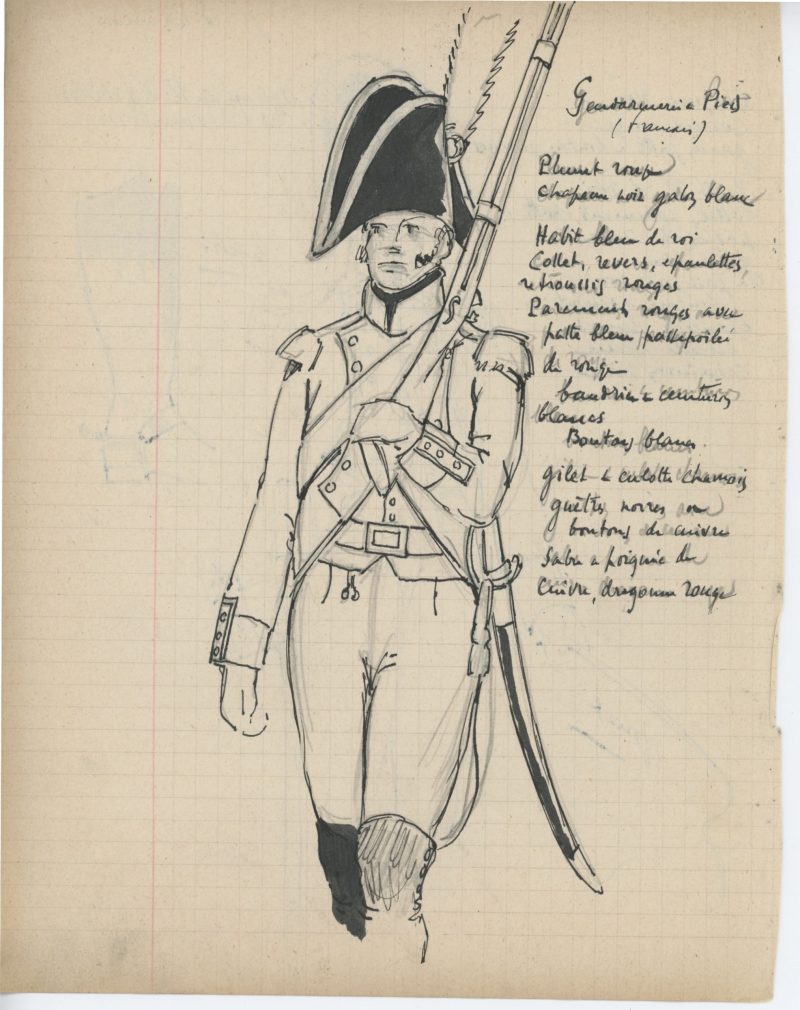 Gendarmerie à Pied
(Francais)
Plumet rouge
chapeau noir galon blanc
Habit bleu de roi
Collet, revers, epaulettes,
retroussis rouges
Parements rouges avec
patte bleu passepoilée
de rouge
baudrier & ceinturon
blancs
Boutons blancs.
gilet & culotte chamois
guêtres noires
boutons de cuivre
Sabre a poignée de
Cuivre, dragonne rouge